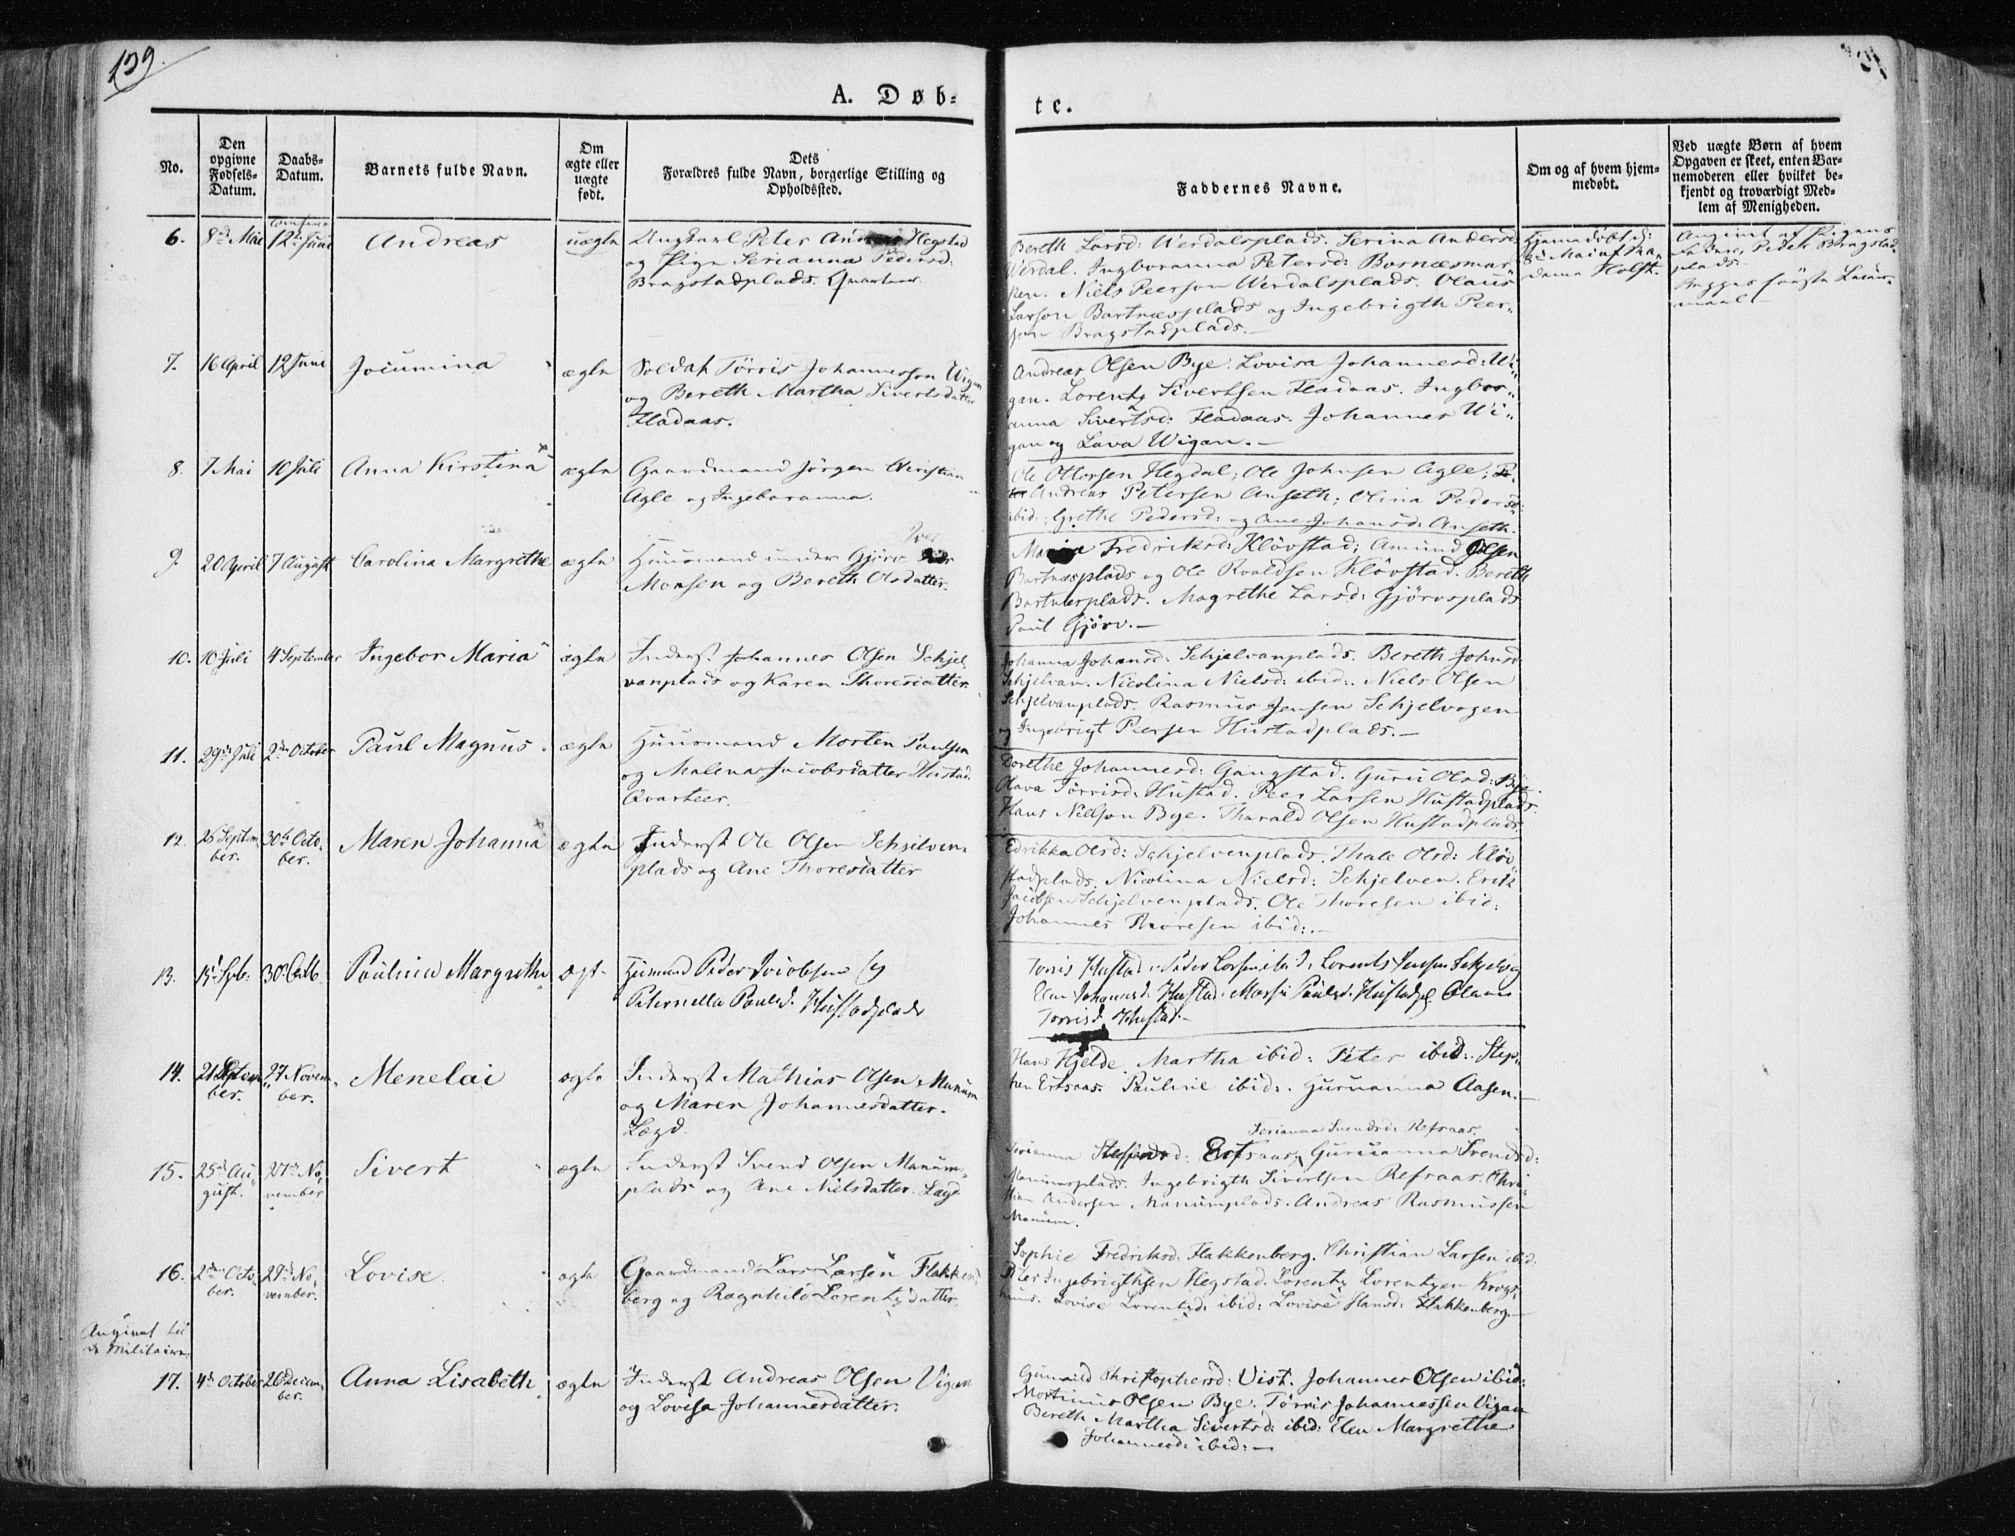 139.
A. Døb-
te.
No.
Den opgivne Fødsels-Datum.
Daabs-Datum.
Barnets fulde Navn.
Om ægte eller uægte født.
Dets Forældres fulde Navn, borgerlige Stilling og Opholdssted.
Faddernes Navne.
Om og af hvem hjemmedøbt.
Ved uægte Børn af hvem Opgaven er skeet, enten Barnemoderen eller hvilket bekjendt og troværdigt Medlem af Menigheden.
6. 8de Mai 12te Juni Andreas uægte Ungkarl Peter Hegstad
og Pige Serianna Pedersd:
Bragstadplads.
Bereth Larsd: Werdalsplads. Serina Andersd:
Werdal. Ingboranna Petersd: Bosnæsmar-
ken. Niels Peerson Werdalsplads. Olaus
Larson Bartnæsplads og Ingebrigth Peer-
son Bragstadplads.
Hjemmedøbt d:
8de Mai af Ma-
dame Holst.
Angivet af Pigens
Fader, Peder Bragstad-
plads.
7. 16 April 12 Juni Joiumina ægte Soldat Törris Johannesson Wigan
og Bereth Martha Sivertsdatter
Fladaas.
Andreas Olsen Bye. Lovisa Johannesd: Wi-
gan. Lorentz Sivertsen Fladaas. Ingbor-
anna Sivertsd: Fladaas. Johannes Wi-
gan og Lava Wigan.
8. 7 Mai 10 Juli Anna Kirstina ægte Gaardmand Jörgen Christian
Agle og Ingeboranna.
Ole Ottersen Hegdal; Ole Johnsen Agle;
Andreas Petersen Anseth; Olina Pedersd:
ibid:; Grethe Pedersd: og Ane Johansd: Anseth.
9. 20 April 7 August Carolina Margrethe ægte Huusmand under Gjörv
Monsen og Bereth Olsdatter.
Maria Fredriksd: Klövstad; Amund Olsen
Bartnæsplads og Ole Roaldsen Klövstad. Bereth
Bartnæsplads. Magrethe Larsd: Gjörvsplads
Paul Gjörv.
10. 10 Juli 4 September Ingebor Maria ægte Inderst Johannes Olsen Schjel-
vanplads og Karen Thoresdatter.
Johanna Johansd: Schjelvanplads. Bereth Johnsd:
Schjelvan. Nicolina Nielsd: ibid:. Niels Olsen
Schjelvanplads. Rasmus Jensen Schjelvagen
og Ingebrigt Peersen Hustadplads.
11. 29de Juli 2den October Paul Magnus ægte Huusmand Morten Paulsen
og Malena Jacobsdatter Hustad
Qvarteer.
Dorethe Johannesd: Gangstad. Guru Olsd: Bye.
Olava Törrisd: Hustad. Peer Larsen Hustadplads.
Hans Nielson Bye. Tharald Olsen Hustadplads.
12. 26 Septem-
ber. 30te Octo-
ber. Maren Johanna ægte Inderst Ole Olsen Schjelven-
plads og Ane Thoresdatter
Edrikka Olsd: Schjelvenplads. Thale Olsd: Klöv-
stadplads. Nicolina Nielsd: Schjelven. Erik
Jacobsen Schjelvenplads. Ole Thoresen ibid:
Johannes Thoresen ibid:.
13. 30te Octb. Paulina Margrethe ægt Huusmand Peder Jacobsen og
Peternella Paulsd. Hustadplads
Torris Hustad. Peder Larsen ibid, Lorents Jensen Schjelvag
Elen Johannesd. Hustad. Marta Paulsd. Hustadpl
Torrisd. Hustad.
14. 21 Septem-
ber. 27 Novem-
ber. Menelai ægte Inderst Mathias Olsen Manum
og Maren Johannesdatter.
Lægd.
Hans Hjelde. Martha ibid: Peter ibid:. Step-
hen Ertsaas. Pauline ibid:. Guruanna Aasen.
Serianna Svendsd: Refsaas.
15. 25de Au-
gust. 27de No-
vember Sivert ægte Inderst Svend Olsen Manum-
plads og Ane Nielsdatter. Lægd
Serianna Steffensd: Ertsaas, Guruanna Svendsd:
Manumsplads. Ingebrigth Sivertsen Refsaas. Chri-
stian Andersen Manumplads. Andreas Rasmussen
Manum.
16. 2den Octo-
ber. 27de No-
vember. Lovise ægte Gaardmand Lars Larsen Flakken-
berg og Ragnhild Lorentzdatter.
Sophie Fredriksd: Flakkenberg. Christian Larsen ibid:
Peter Ingebrigthsen Hegstad. Lorentz Lorentzen Krogs-
huus. Lovise Lorentzd: ibid: Lovise Hansd: Flakkenberg.
Angivet til
d: Militaire.
17. 4de October 26 Decem-
ber. Anna Lisabeth ægte Inderst Andreas Olsen Vigan
og Lovisa Johannesdatter.
Gunild Christophersd: Vist. Johannes Olsen ibid:
Mortinus Olsen Bye. Törris Johannessen Vigan
Bereth Martha Sivertsd: ibid: Elen Margrethe
Johannesd: ibid: